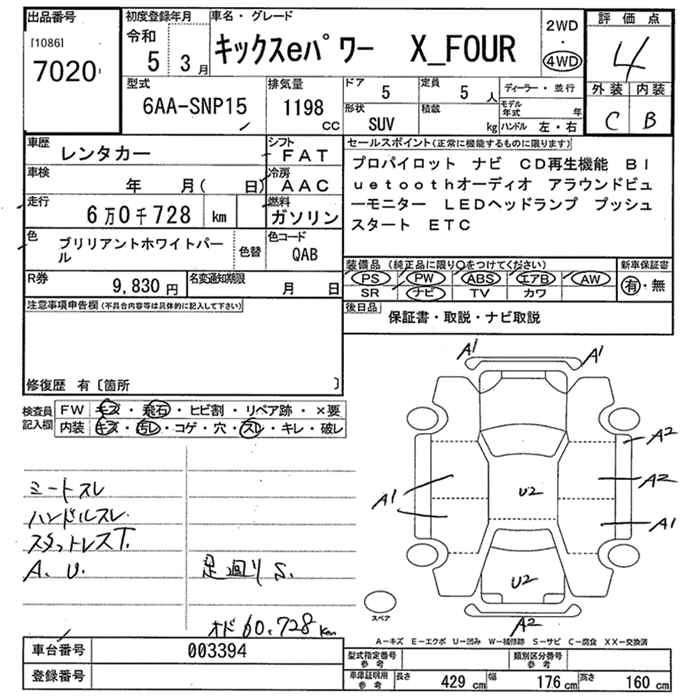 出品番号
[1086]
7020
初度登録年月
令和
5 3月
車名・グレード
キックスeパワー X_FOUR
2WD
・
4WD
評価点
4
外装 内装
C B
型式
6AA-SNP15
排気量
1198
CC
ドア
5
定員
5 人
形状
SUV
積載
kg
ディーラー・並行
モデル年式 年
ハンドル 左・右
車歴
レンタカー
シフト
FAT
車検
年 月( 日)
冷房
AAC
走行
6万0千728 km
燃料
ガソリン
色
ブリリアントホワイトパール
色替
色コード
QAB
R券
9,830 円
名変通知期限
月 日
セールスポイント(正常に機能するものに限ります)
プロパイロット ナビ CD再生機能 Bl
uetoothオーディオ アラウンドビュ
ーモニター LEDヘッドランプ プッシュ
スタート ETC
装備品 (純正品に限り○をつけてください)
新車保証書
PS PW ABS エアB AW
SR ナビ TV カワ
有・無
後日品
保証書・取説・ナビ取説
注意事項申告欄(不具合内容等は具体的に記入して下さい)
修復歴 有〔箇所 〕
検査員
記入欄
FW キズ・飛石・ヒビ割・リペア跡・×要
内装 キズ・汚レ・コゲ・穴・スレ・キレ・破レ
シートスレ
ハンドルスレ
スタットレスT.
A. U.
足廻りS.
オド60.728km
A1 A1
A2
A2
A1
A1
U2
U2
A2
スペア
A-キズ E-エクボ U-凹み W-補修跡 S-サビ C-腐食 XX-交換済
車台番号
003394
登録番号
型式指定番号
参考
類別区分番号
参考
車庫証明用
参考
長さ 429 cm 幅 176 cm 高さ 160 cm